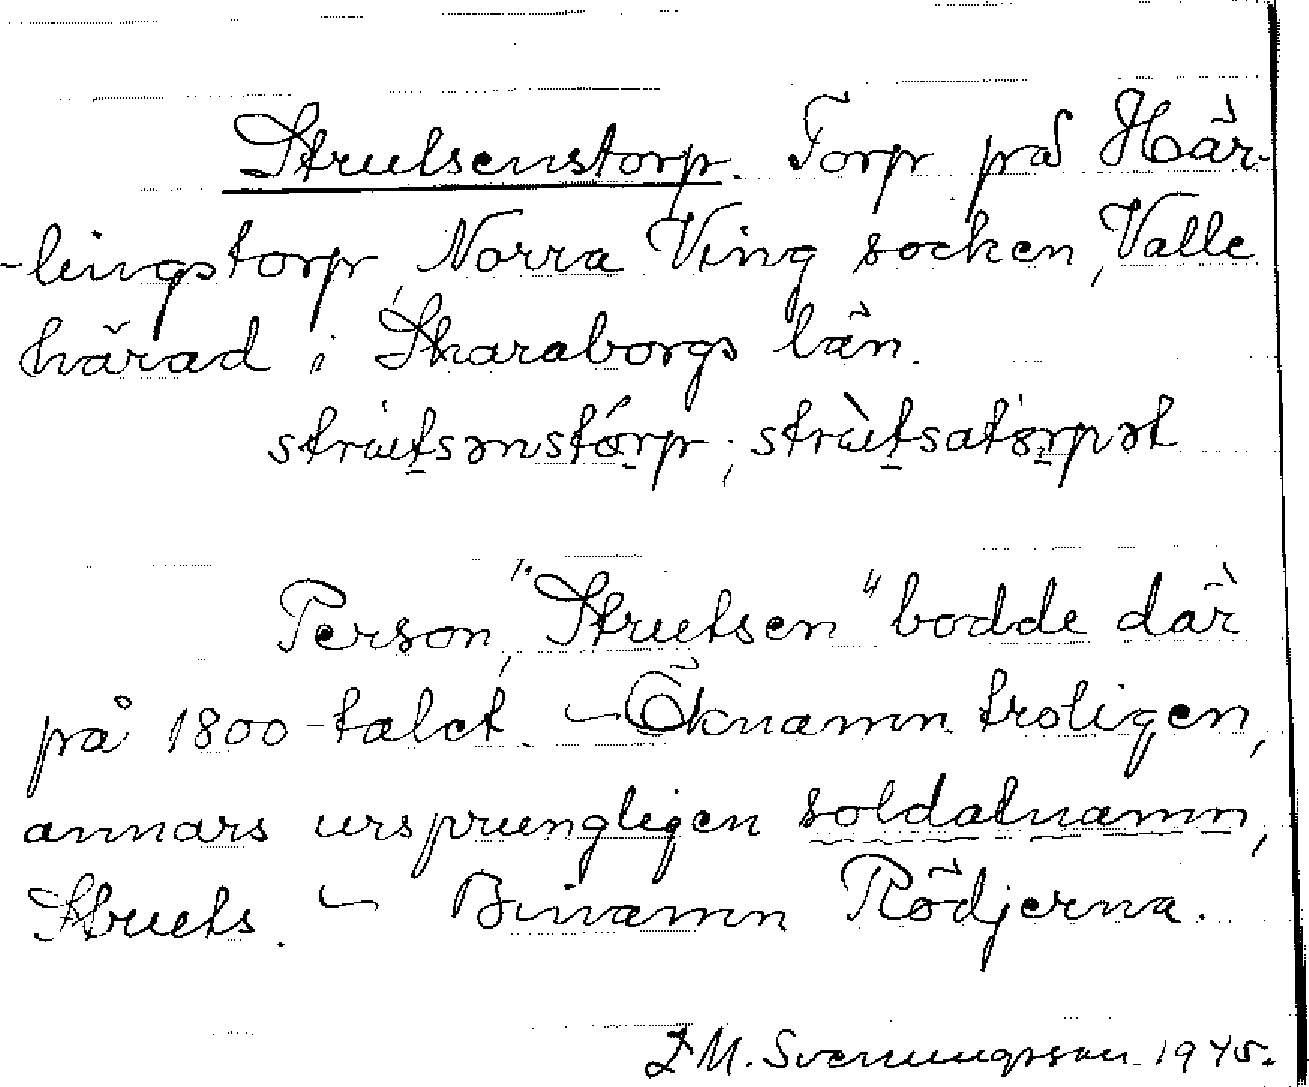 Strutsenstorp. Torp på Här-
-lingstorp, Norra Ving socken, Valle
härad i Skaraborgs län.
strùtsənstórp; strùtsatòrpət
Person, "Strutsen" bodde där
på 1800-talet. - Öknamn troligen,
annars ursprungligen soldatnamn,
Struts. - Binamn Rödjerna.
L M. Svenungsson 1945.